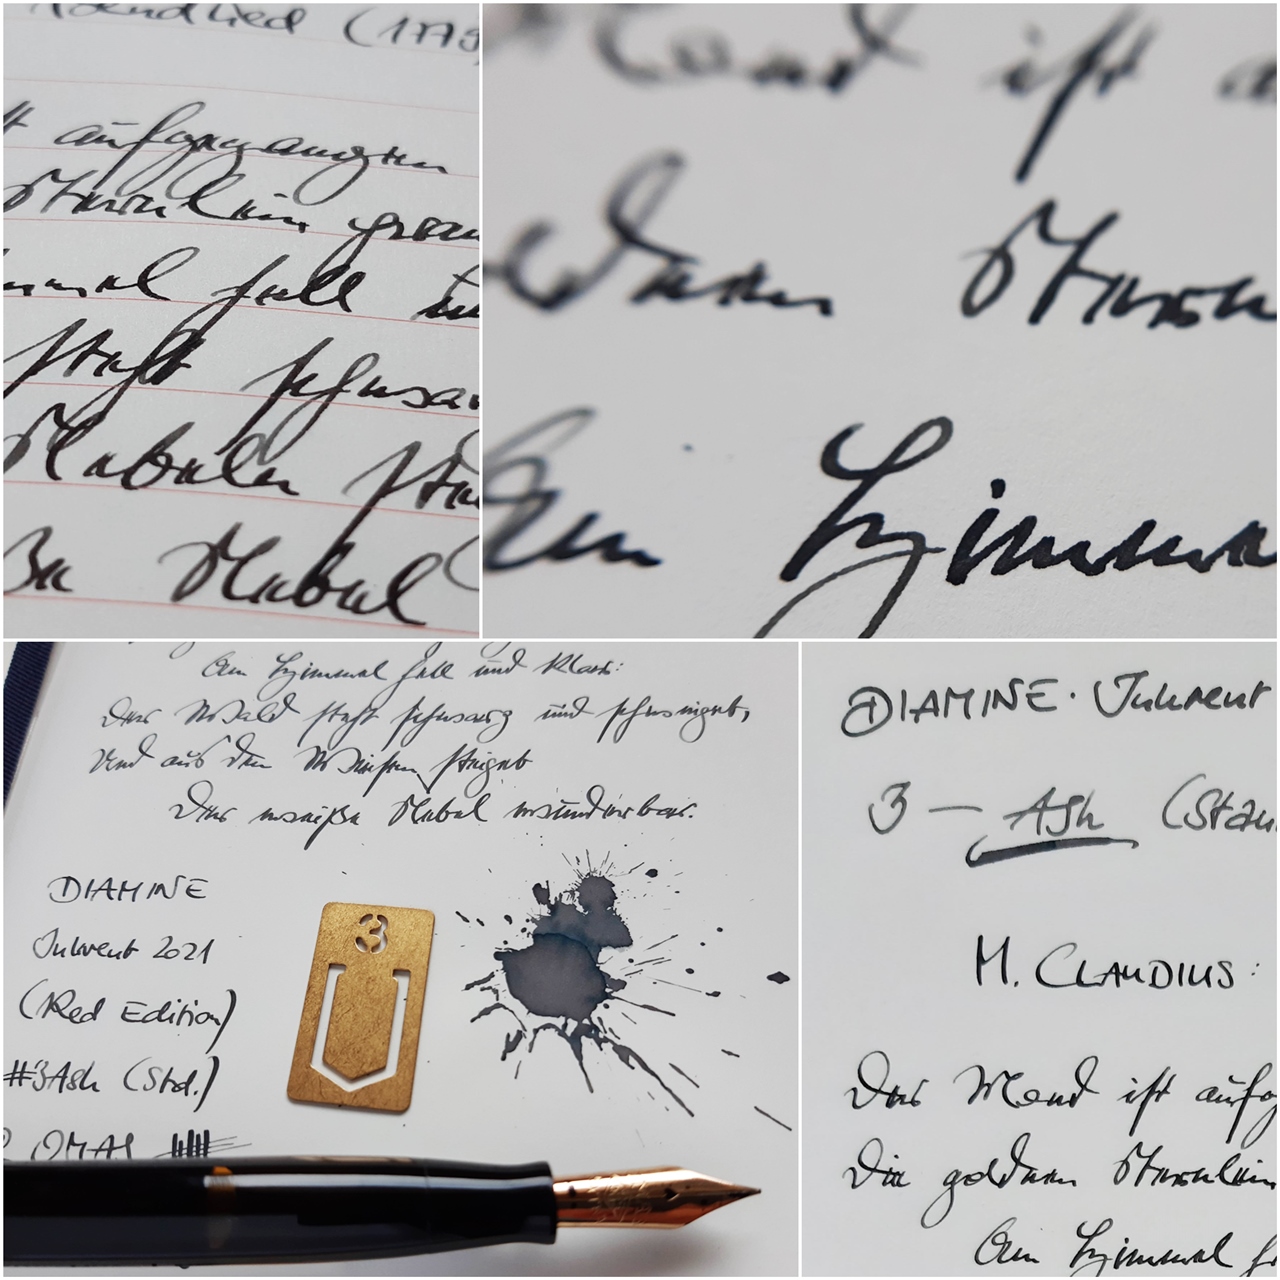 bendlied (1779
t aufgegangen
Sternlein pran
immel hell un
steht schwar
ße Nebel
Mond ist a
ldnen Sternl
Am Himme
Am Himmel hell und klar:
Der Wald steht schwarz und schweiget,
Und aus den Wiesen steiget
Der weiße Nebel wunderbar.
DIAMINE
Inkvent 2021
(Red Edition)
#3 Ash (Std.)
OMAS
3
DIAMINE · Inkvent
3 — Ash (Stan
M. CLAUDIUS:
Der Mond ist aufg
Die goldnen Sternlein
Am Himmel h